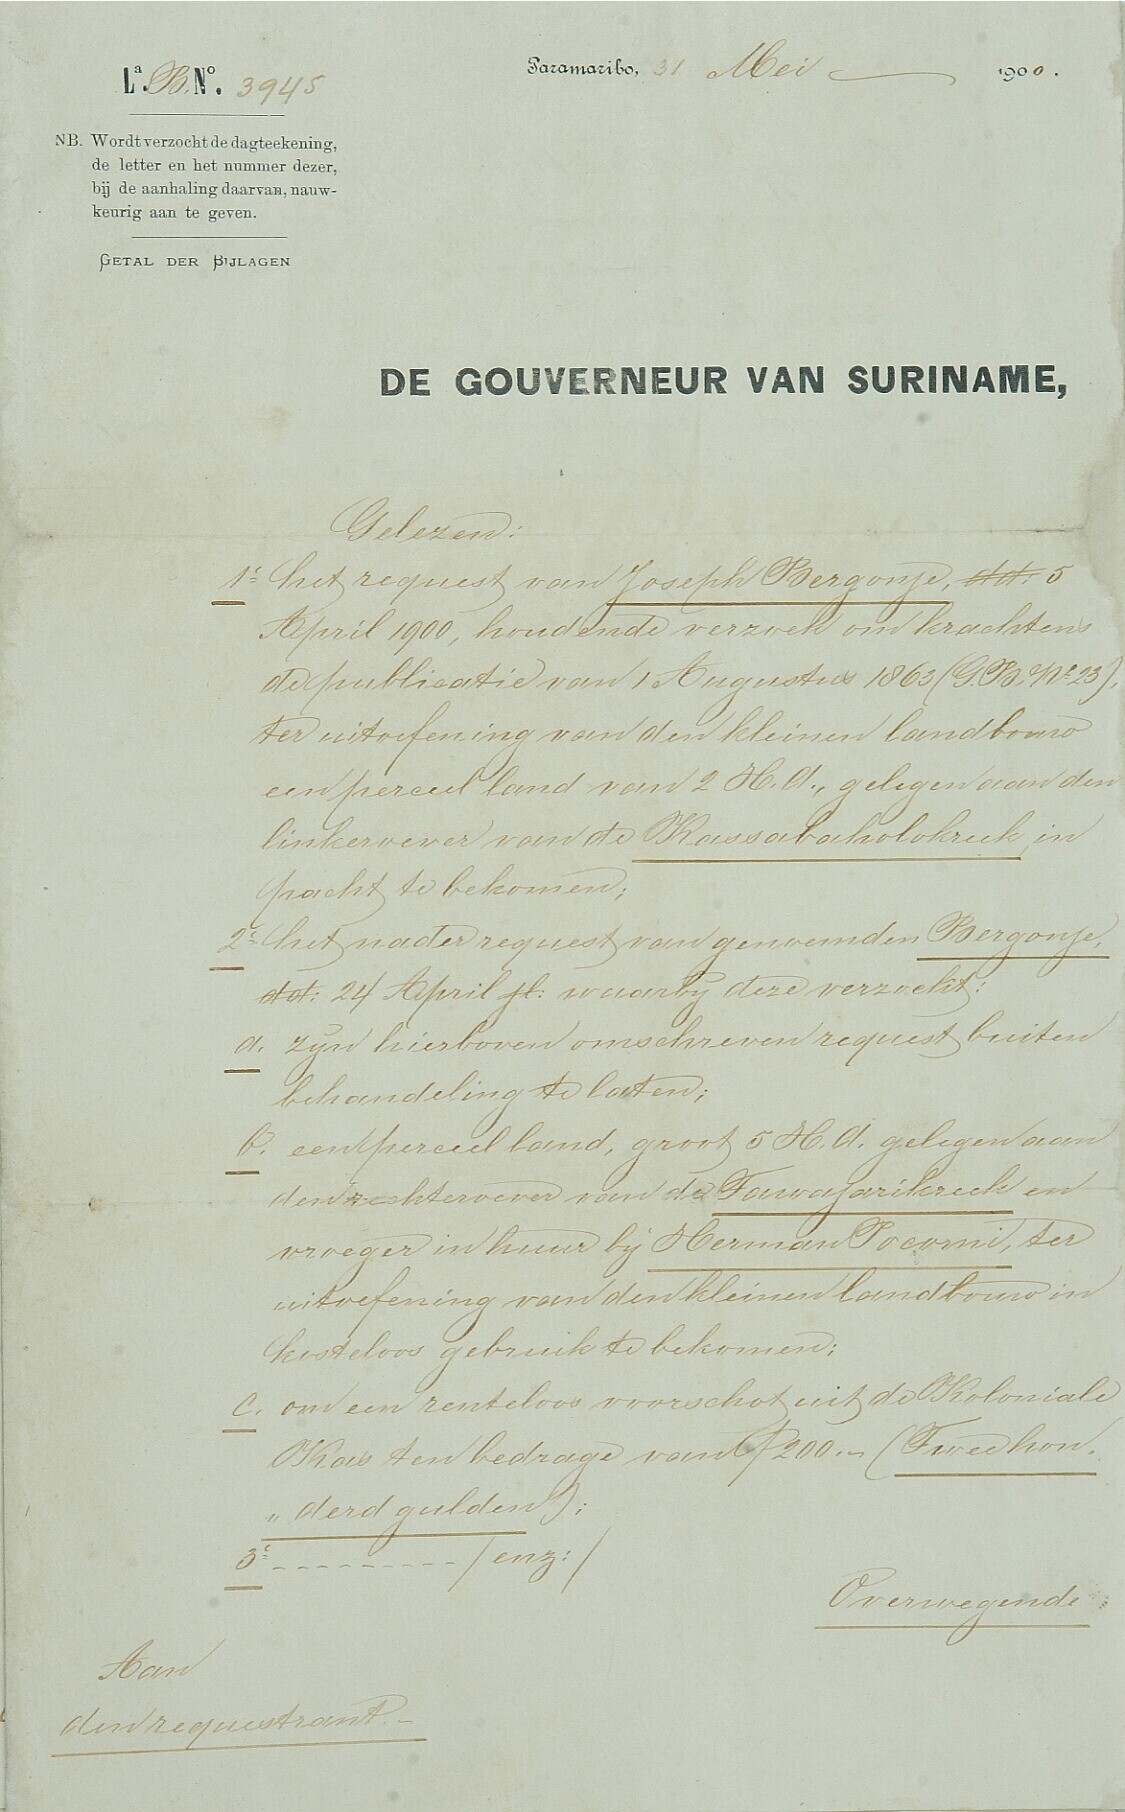 La. B. No. 3945
Paramaribo, 31 Mei 1900.
NB. Wordt verzocht de dagteekening,
de letter en het nummer dezer,
bij de aanhaling daarvan, nauw-
keurig aan te geven.
GETAL DER BIJLAGEN
DE GOUVERNEUR VAN SURINAME,
Gelezen:
1e het request van Joseph Bergonje, dd: 5
April 1900, houdende verzoek om krachtens
de publicatie van 1 Augustus 1863 (G.B. No 23),
ter uitoefening van den kleinen landbouw
een perceel land van 2 H.A., gelegen aan den
linkeroever van de Kassabaholokreek in
pacht te bekomen;
2e het nader request van genoemden Bergonje,
dd: 24 April jl: waarbij deze verzocht:
a. zijn hierboven omschreven request buiten
behandeling te laten;
b. een perceel land, groot 5 H.A. gelegen aan
den rechteroever van de Tawajarikreek en
vroeger in huur bij Herman Pocorni, ter
uitoefening van den kleinen landbouw in
kosteloos gebruik te bekomen;
c. om een renteloos voorschot uit de Koloniale
Kas ten bedrage van f 200.- (Twee hon-
„ derd gulden);
3e --------- / enz: /
Overwegende:
Aan
den requestrant.-